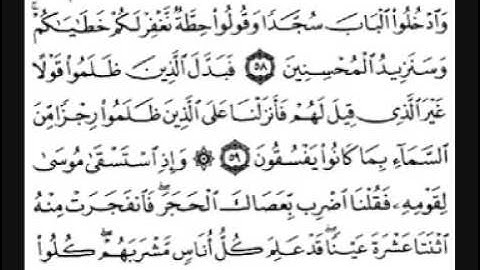 وَٱدْخُلُوا۟ ٱلْبَابَ سُجَّدًا وَقُولُوا۟ حِطَّةٌ نَّغْفِرْ لَكُمْ خَطَٰيَٰكُمْ ۚ
وَسَنَزِيدُ ٱلْمُحْسِنِينَ ٥٨ فَبَدَّلَ ٱلَّذِينَ ظَلَمُوا۟ قَوْلًا
غَيْرَ ٱلَّذِى قِيلَ لَهُمْ فَأَنزَلْنَا عَلَى ٱلَّذِينَ ظَلَمُوا۟ رِجْزًا مِّنَ
ٱلسَّمَآءِ بِمَا كَانُوا۟ يَفْسُقُونَ ٥٩ ۞ وَإِذِ ٱسْتَسْقَىٰ مُوسَىٰ
لِقَوْمِهِۦ فَقُلْنَا ٱضْرِب بِّعَصَاكَ ٱلْحَجَرَ ۖ فَٱنفَجَرَتْ مِنْهُ
ٱثْنَتَا عَشْرَةَ عَيْنًا ۖ قَدْ عَلِمَ كُلُّ أُنَاسٍ مَّشْرَبَهُمْ ۖ كُلُوا۟